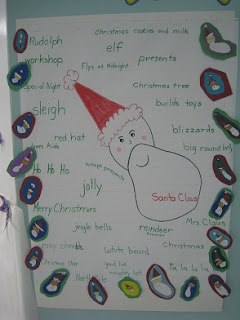 Christmas cookies and milk
Rudolph
elf
workshop
Flys at Midnight
presents
Special Night
Christmas tree
sleigh
builds toys
red hat
blizzards
loves kids
big round belly
Ho Ho Ho
wraps presents
jolly
Santa Claus
Merry Christmas
Mrs. Claus
jingle bells
reindeer
rosy cheeks
white beard
Christmas
good list
naughty list
North Pole
Fa la la la la